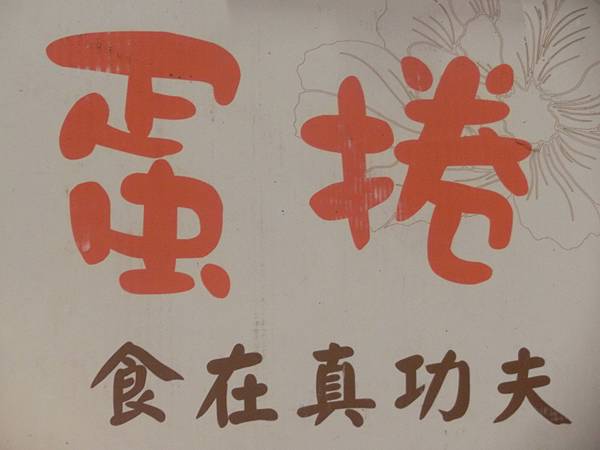 蛋捲
食在真功夫